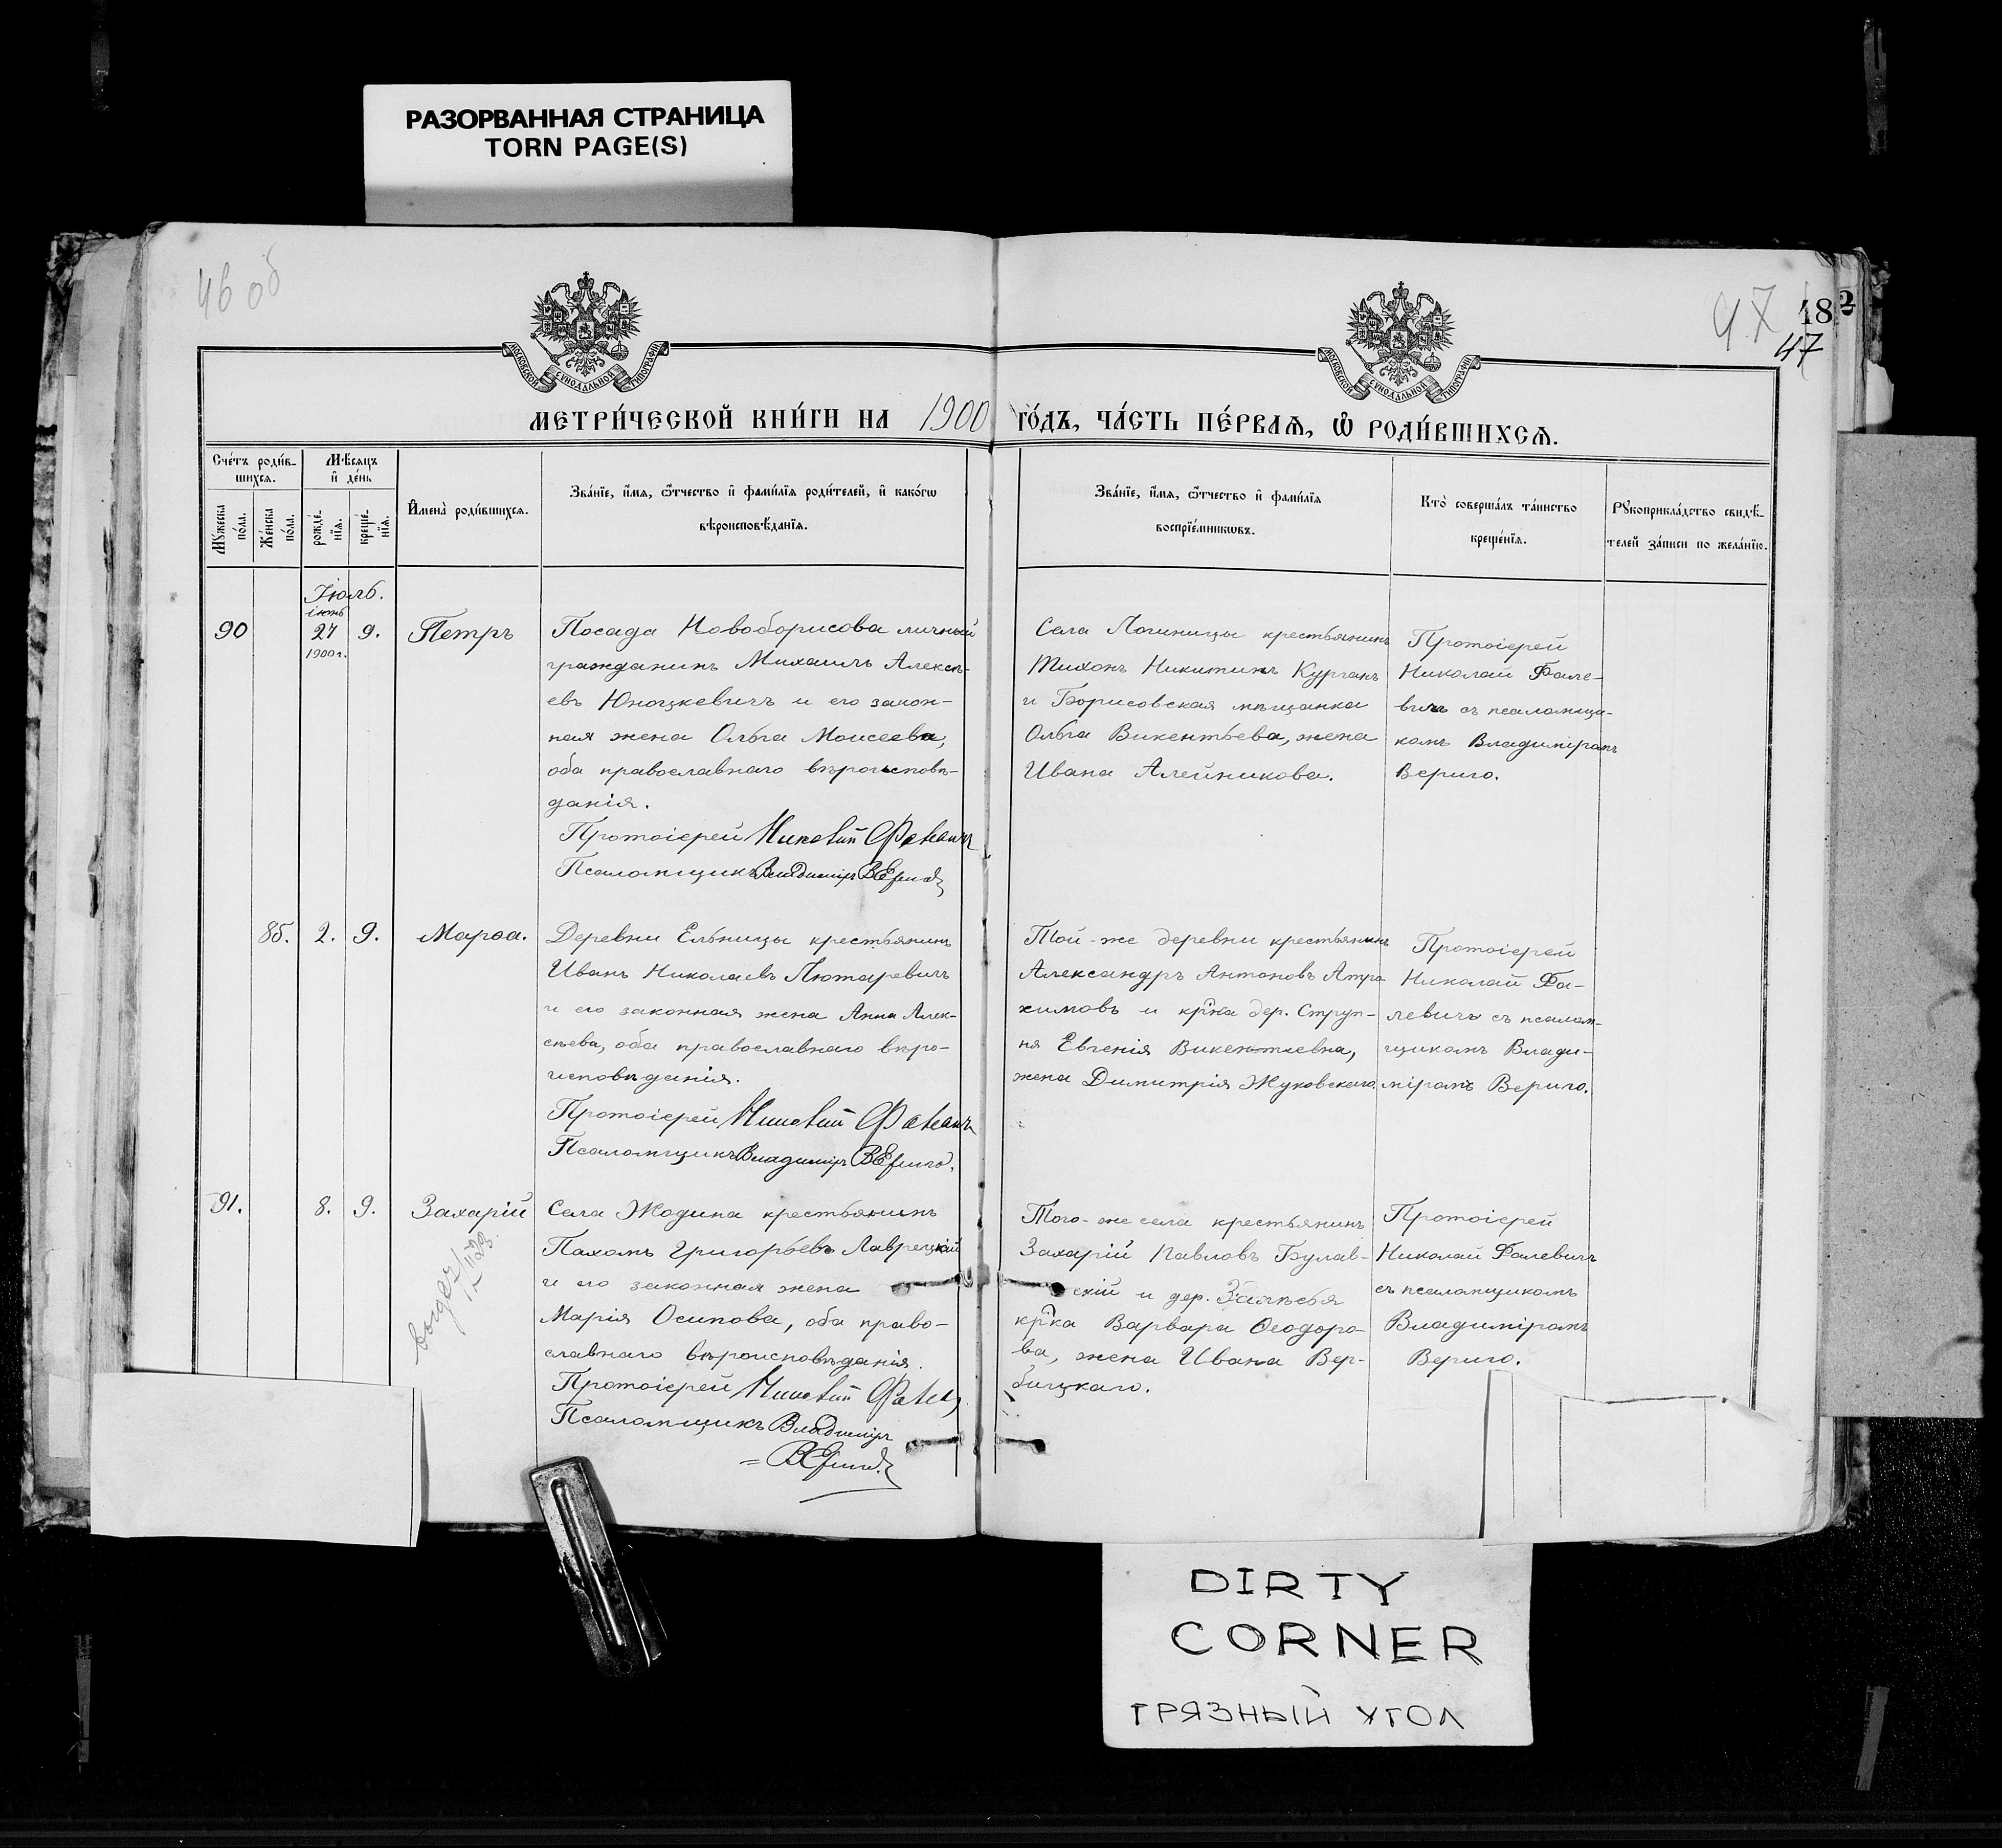 РАЗОРВАННАЯ СТРАНИЦА
TORN PAGE(S)
46 об
47
182
47
МОСКОВСКОЙ СУНОДАЛЬНОЙ ТИПОГРАФІИ
МОСКОВСКОЙ СУНОДАЛЬНОЙ ТИПОГРАФІИ
МЕТРИ́ЧЕСКОЙ КНИ́ГИ НА 1900 ГО́ДЪ, ЧА́СТЬ ПЕ́РВАѦ, Ѿ РОДИ́ВШИХСѦ.
Сче́тъ роди́в-
шихсѧ.
Мѣ́сѧцъ
и҆ де́нь
Мꙋ́жеска по́ла.
Же́нска по́ла.
рожде́-
нїѧ.
креще́-
нїѧ.
И҆мена̀ роди́вшихсѧ.
Зва́нїе, и҆́мѧ, ѻ҆́тчество и҆ фами́лїѧ роди́телей, и҆ како́гѡ
вѣроисповѣ́данїѧ.
Зва́нїе, и҆́мѧ, ѻ҆́тчество и҆ фами́лїѧ
воспрїе́мникѡвъ.
Кто̀ соверша́лъ та́инство
креще́нїѧ.
Рꙋкоприкла́дство свидѣ́-
телей за́писи по жела́нїю.
Іюль.
90
іюнь
27
1900 г.
9.
Петръ
Посада Новоборисова личный
гражданинъ Михаилъ Алексѣ-
евъ Юноцкевичъ и его закон-
ная жена Ольга Моисеева,
оба православнаго вѣроисповѣ-
данія.
Протоіерей Николай Фалевичъ
Псаломщикъ Владиміръ Вериго
Села Логиницы крестьянинъ
Тихонъ Никитинъ Курганъ
и Борисовская мѣщанка
Ольга Викентьева, жена
Ивана Алейникова.
Протоіерей
Николай Фале-
вичъ съ псаломщи-
комъ Владиміромъ
Вериго.
85.
2.
9.
Марѳа.
Деревни Ельницы крестьянинъ
Иванъ Николаевъ Лютаревичъ
и его законная жена Анна Алек-
сѣева, оба православнаго вѣро-
исповѣданія.
Протоіерей Николай Фалевичъ
Псаломщикъ Владиміръ Вериго.
Той-же деревни крестьянинъ
Александръ Антоновъ Атра
химовъ и кр҃ка дер. Струп-
ня Евгенія Викентіевна,
жена Димитрія Жуковскаго.
Протоіерей
Николай Фа-
левичъ съ псалом-
щикомъ Влади-
міромъ Вериго.
91.
8.
9.
Захарій
Села Жодина крестьянинъ
Пахомъ Григорьевъ Лаврецкій
и его законная жена
Марія Осипова, оба право-
славнаго вѣроисповѣданія.
Протоіерей Николай Фалев
Псаломщикъ Владиміръ
= Вериго.
Того-же села крестьянинъ
Захарій Павловъ Булав-
скій и дер. Залѣсья
кр҃ка Варвара Ѳеодоро-
ва, жена Ивана Вер-
бицкаго.
Протоіерей
Николай Фалевичъ
съ псаломщикомъ
Владиміромъ
Вериго.
DIRTY
CORNER
ГРЯЗНЫЙ УГОЛ